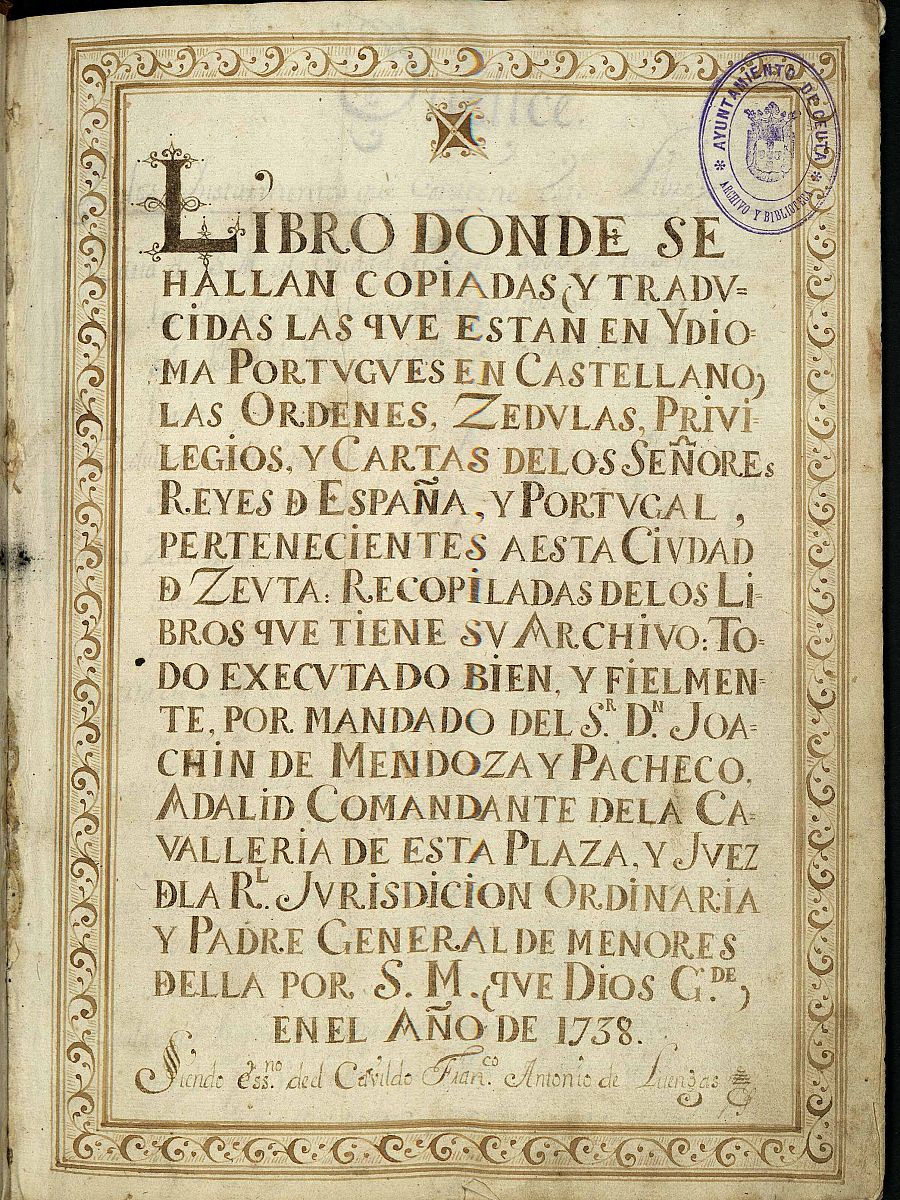 AYUNTAMIENTO DE CEUTA
ARCHIVO Y BIBLIOTECA
LIBRO DONDE SE
HALLAN COPIADAS (Y TRADV=
CIDAS LAS QVE ESTAN EN YDIO-
MA PORTVGVES EN CASTELLANO)
LAS ORDENES, ZEDVLAS, PRIVI-
LEGIOS, Y CARTAS DELOS SEÑORES
REYES Đ ESPAÑA, Y PORTVGAL,
PERTENECIENTES AESTA CIVDAD
Đ ZEVTA: RECOPILADAS DELOS LI-
BROS QVE TIENE SV ARCHIVO: TO-
DO EXECVTADO BIEN, Y FIELMEN-
TE, POR MANDADO DEL S.R D.N JOA-
CHIN DE MENDOZA Y PACHECO,
ADALID COMANDANTE DELA CA-
VALLERIA DE ESTA PLAZA, Y JVEZ
ĐLA R.L JVRISDICION ORDINARIA
Y PADRE GENERAL DE MENORES
ĐELLA POR S. M. (QVE DIOS G.DE)
EN EL AÑO DE 1738.
Siendo ess.no del Cavildo Fran.co Antonio de Luengas